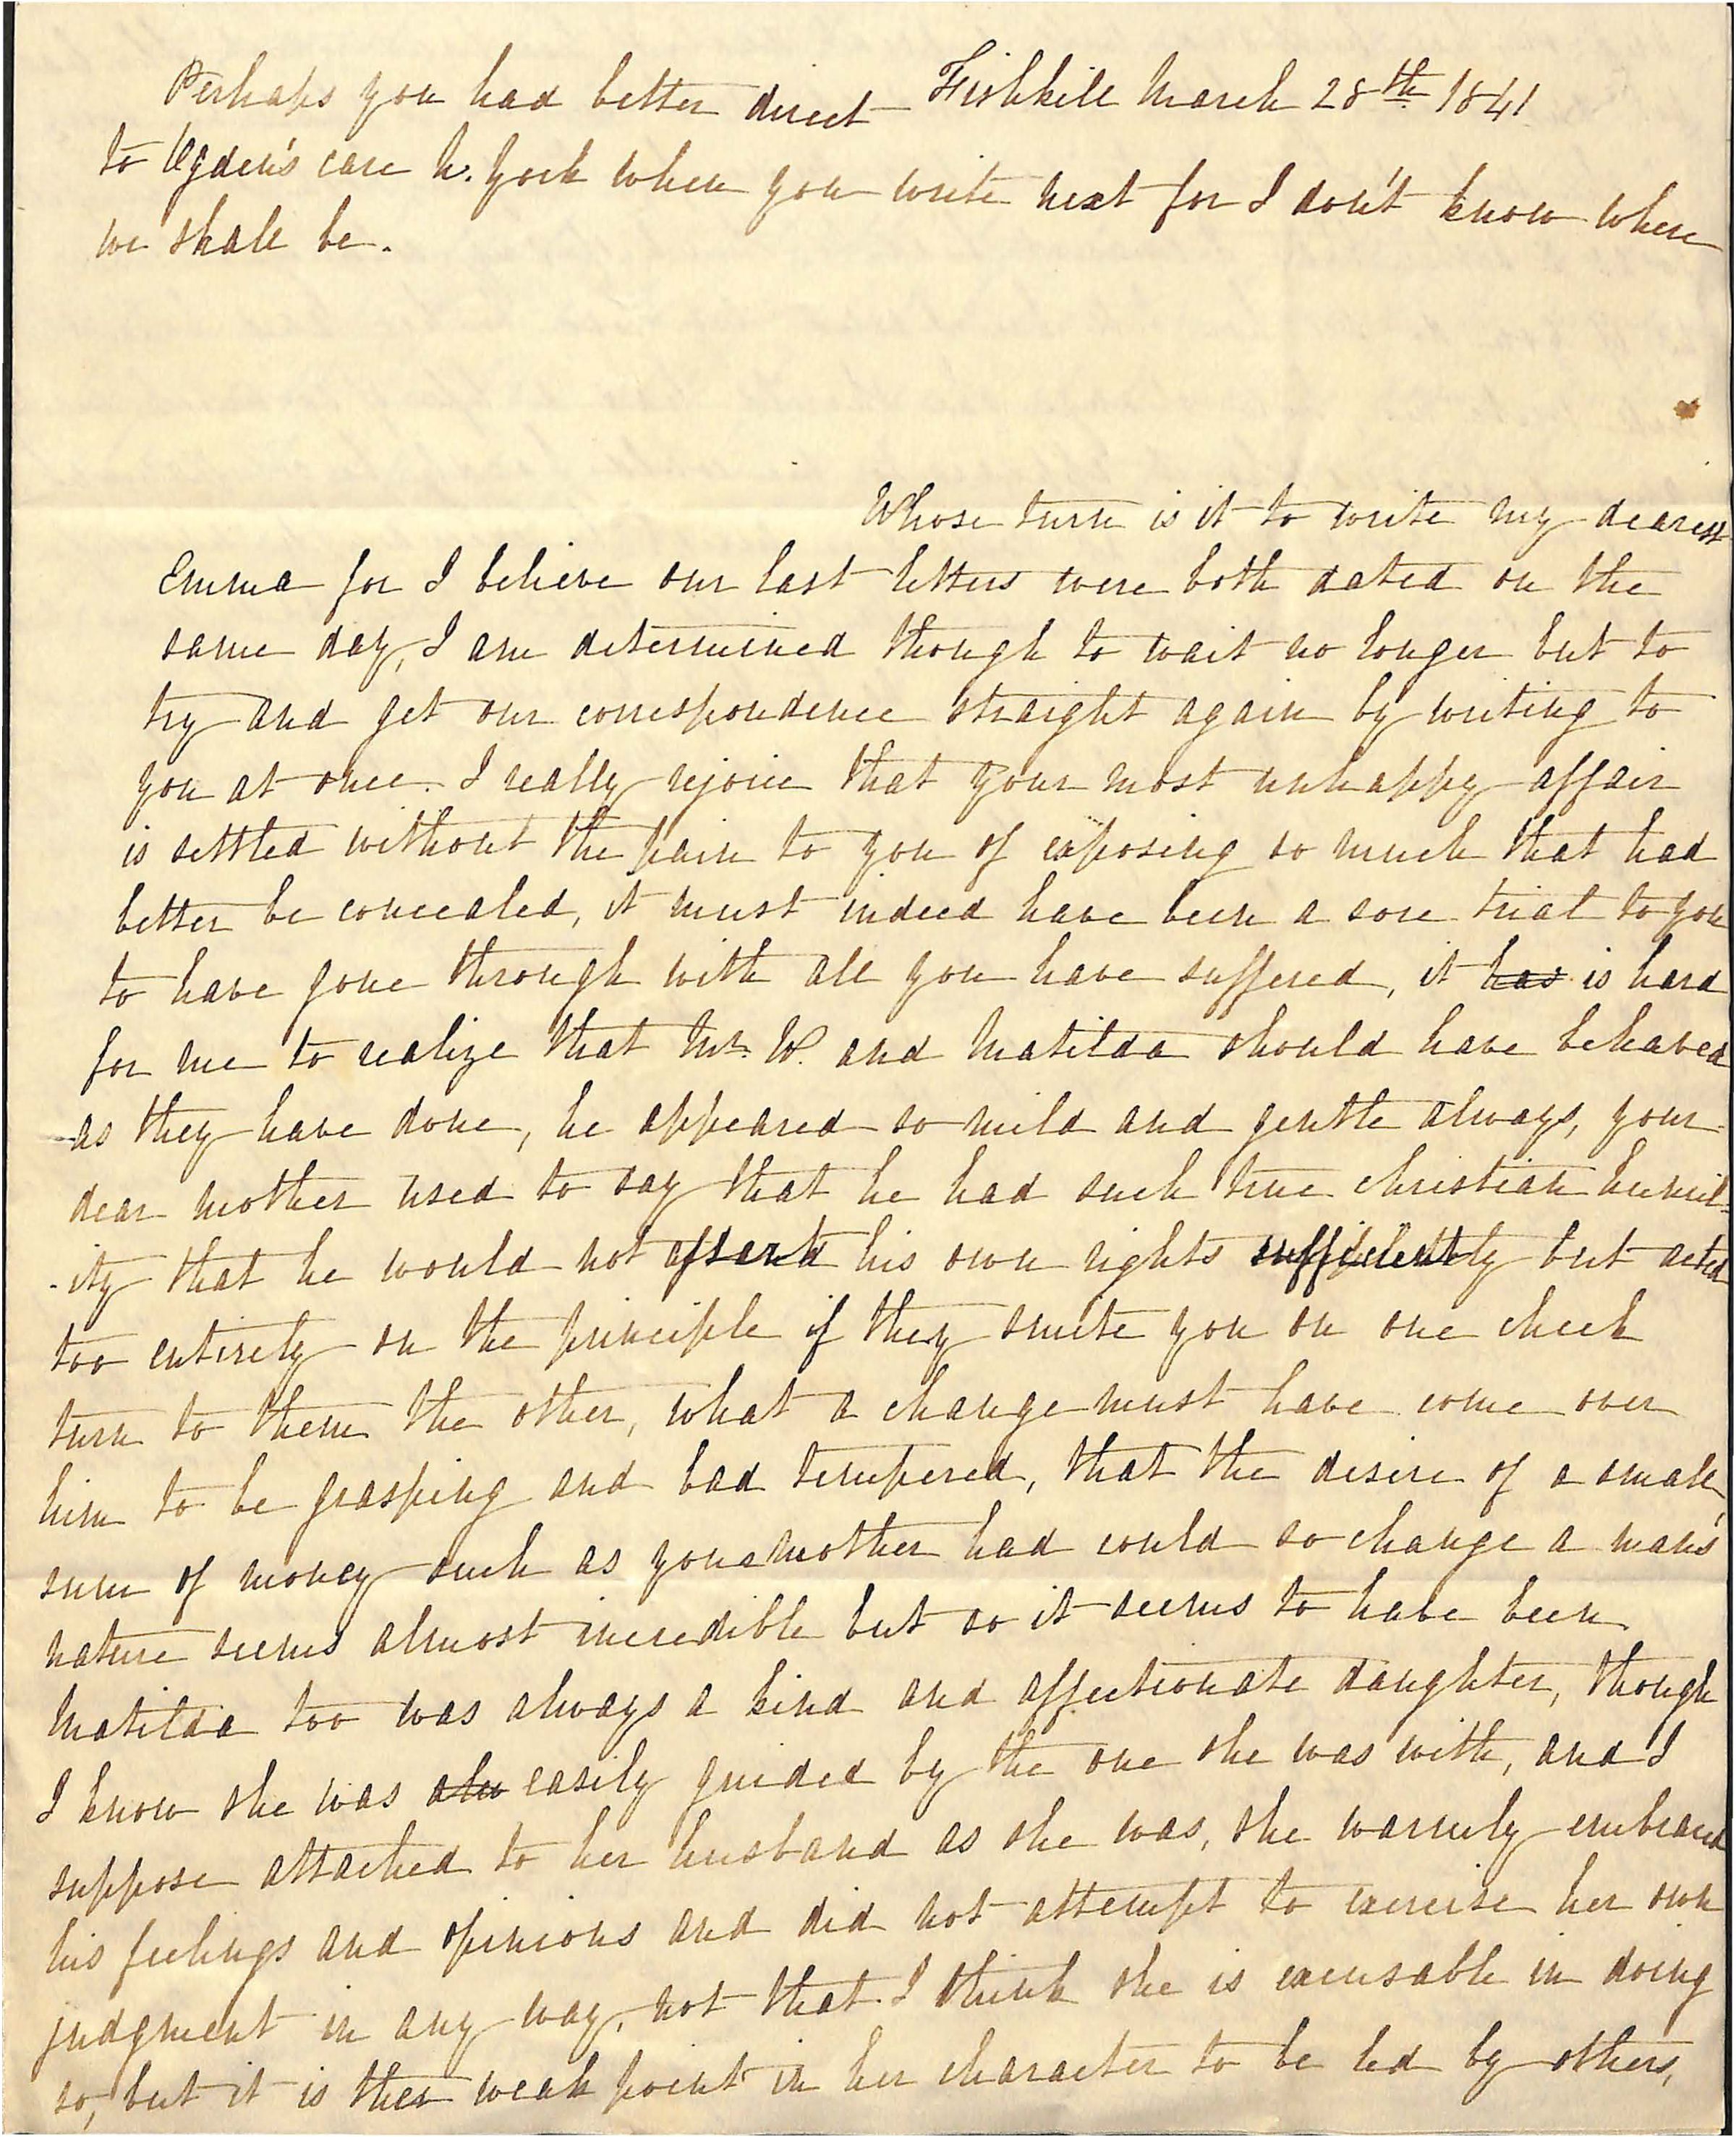 Perhaps you had better direct Fishkill March 28th 1841
to Ogden's care N. York when you write next for I don't know where
we shall be.
Whose turn is it to write my dearest
Emma for I believe our last letters were both dated on the
same day, I am determined though to wait no longer but to
try and get our correspondence straight again by writing to
you at once. I really rejoice that your most unhappy affair
is settled without the pain to you of exposing so much that had
better be concealed, it must indeed have been a sore trial to you
to have gone through with all you have suffered, it has is hard
for me to realize that Mr. W. and Matilda should have behaved
as they have done, he appeared so mild and gentle always, your
dear mother used to say that he had such true christian humil-
-ity that he would not assert his own rights sufficiently but acted
too entirely on the principle if they smite you on one cheek
turn to them the other, what a change must have come over
him to be grasping and bad tempered, that the desire of a small
sum of money such as your mother had could so change a man's
nature seems almost incredible but so it seems to have been
Matilda too was always a kind and affectionate daughter, though
I know she was easily guided by the one she was with, and I
suppose attached to her husband as she was, she warmly embraced
his feelings and opinions and did not attempt to exercise her own
judgment in any way, not that I think she is excusable in doing
so, but it is the weak point in her character to be led by others,